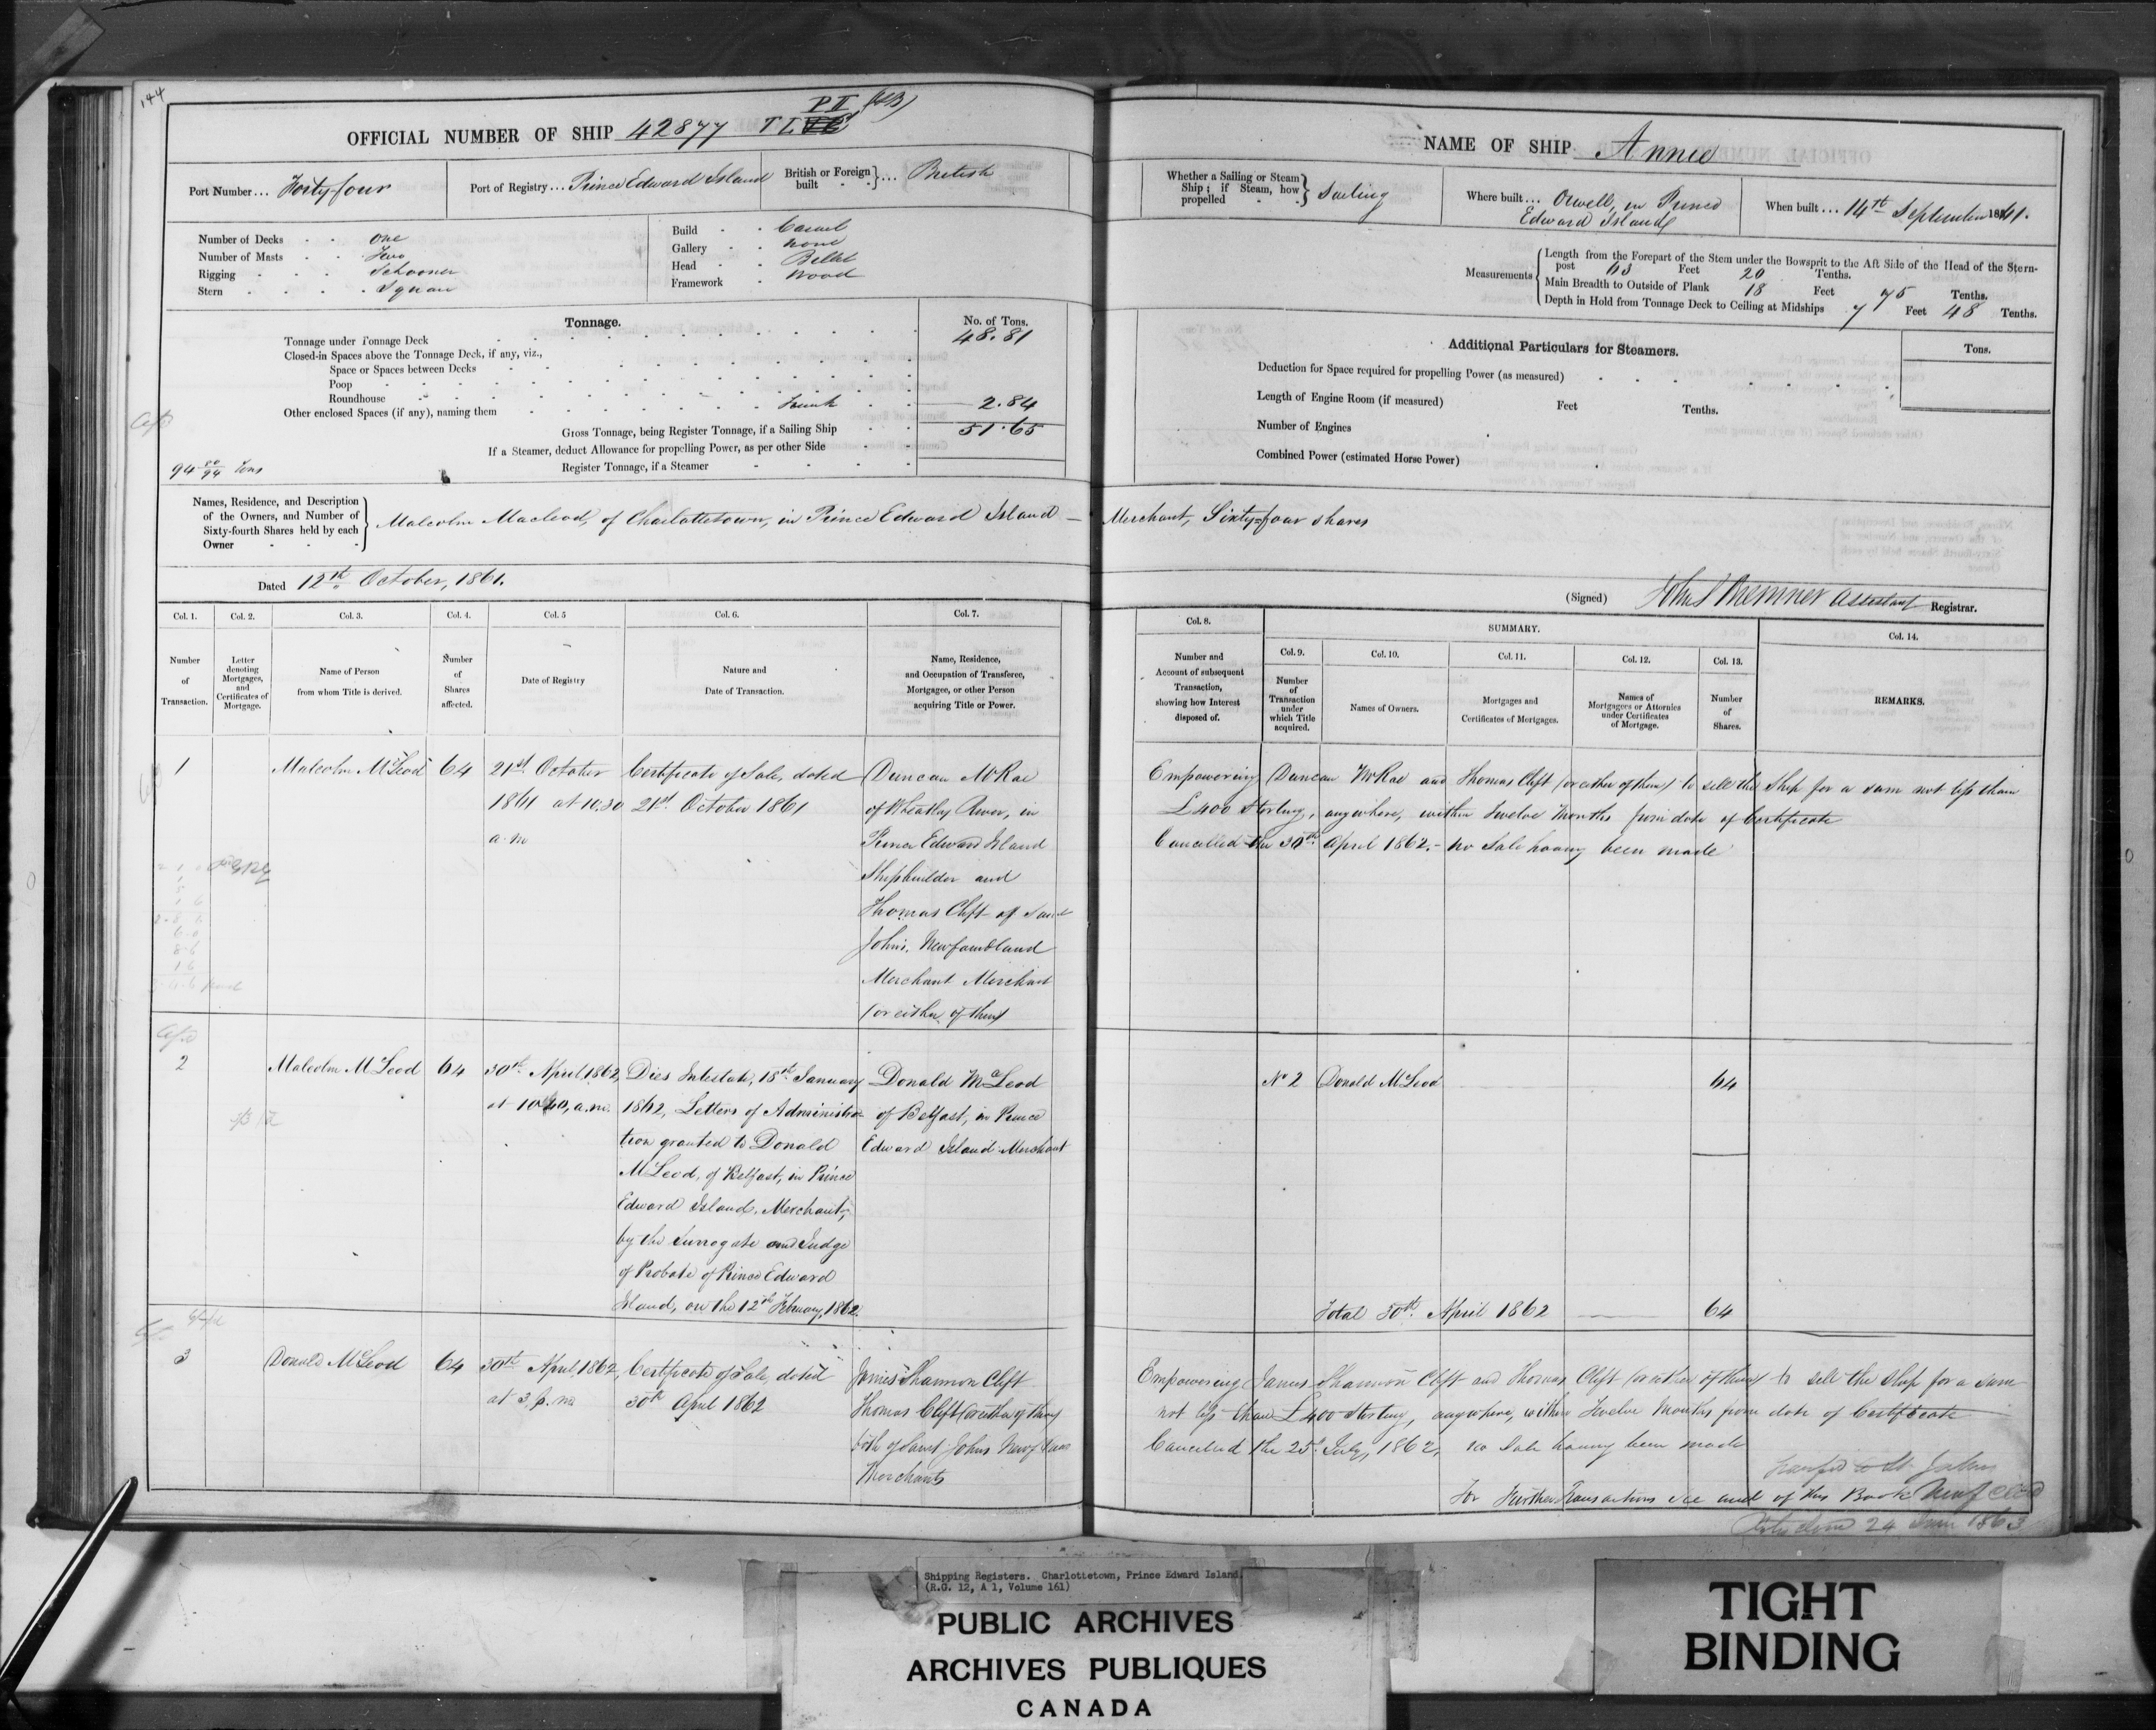 144
PII (HB)
OFFICIAL NUMBER OF SHIP 42877 TL
Port Number... Forty four
Port of Registry... Prince Edward Island
British or Foreign built } ... British
Number of Decks - - One
Number of Masts - - Two
Rigging - - - Schooner
Stern - - - - Square
Build - - Carvel
Gallery - - none
Head - - Billet
Framework - Wood
Tonnage.
No. of Tons.
Tonnage under Tonnage Deck 48.81
Closed-in Spaces above the Tonnage Deck, if any, viz.,
Space or Spaces between Decks
Poop
Roundhouse
Other enclosed Spaces (if any), naming them Trunk 2.84
Gross Tonnage, being Register Tonnage, if a Sailing Ship 51.65
If a Steamer, deduct Allowance for propelling Power, as per other Side
Register Tonnage, if a Steamer
94 80/94 Tons
Names, Residence, and Description
of the Owners, and Number of
Sixty-fourth Shares held by each
Owner
Malcolm Macleod, of Charlottetown, in Prince Edward Island —
Dated 12th October, 1861.
Col. 1. Col. 2. Col. 3. Col. 4. Col. 5 Col. 6. Col. 7.
Number of Transaction.
Letter denoting Mortgages, and Certificates of Mortgage.
Name of Person from whom Title is derived.
Number of Shares affected.
Date of Registry
Nature and Date of Transaction.
Name, Residence, and Occupation of Transferee, Mortgagee, or other Person acquiring Title or Power.
1
Malcolm McLeod
64
21st October
1861 at 10.30
a.m
Certificate of Sale, dated
21st October 1861
Duncan McRae
of Wheatley River, in
Prince Edward Island
Shipbuilder and
Thomas Clift of Saint
John's, Newfoundland
Merchant Merchant
(or either of them)
2
Malcolm McLeod
64
30th April 1862,
at 10.40, a.m.
Dies Intestate, 18th January
1862, Letters of Administra
tion granted to Donald
McLeod, of Belfast, in Prince
Edward Island, Merchant,
by the Surrogate and Judge
of Probate of Prince Edward
Island, on the 12th February, 1862.
Donald McLeod
of Belfast, in Prince
Edward Island Merchant
3
Donald McLeod
64
30th April, 1862,
at 3, p.m
Certificate of Sale, dated
30th April 1862
James Shannon Clift
Thomas Clift (or either of them)
both of Saint Johns
Merchants
NAME OF SHIP Annie
Whether a Sailing or Steam Ship; if Steam, how propelled } Sailing
Where built... Orwell, in Prince
Edward Island
When built... 14th September 1861.
Measurements
Length from the Forepart of the Stem under the Bowsprit to the Aft Side of the Head of the Stern-
post 63 Feet 20 Tenths.
Main Breadth to Outside of Plank 18 Feet 75 Tenths.
Depth in Hold from Tonnage Deck to Ceiling at Midships 7 Feet 48 Tenths.
Additional Particulars for Steamers.
Tons.
Deduction for Space required for propelling Power (as measured)
Length of Engine Room (if measured) Feet Tenths.
Number of Engines
Combined Power (estimated Horse Power)
Merchant, Sixty=four shares
(Signed) Assistant Registrar.
Col. 8. SUMMARY. Col. 14.
Col. 9. Col. 10. Col. 11. Col. 12. Col. 13.
Number and Account of subsequent Transaction, showing how Interest disposed of.
Number of Transaction under which Title acquired.
Names of Owners.
Mortgages and Certificates of Mortgages.
Names of Mortgagees or Attornies under Certificates of Mortgage.
Number of Shares.
REMARKS.
Empowering Duncan McRae and Thomas Clift (or either of them) to sell the Ship for a sum not less than
£400 Sterling, anywhere, within Twelve Months from date of Certificate
Cancelled the 30th April 1862. - no Sale having been made
No 2 Donald McLeod 64
Total 30th April 1862 — 64
Empowering James Shannon Clift and Thomas Clift (or either of them) to sell the Ship for a sum
not less than £400 Sterling, anywhere, within Twelve Months from date of Certificate
Cancelled the 25 July, 1862, no Sale having been made
St. Johns
For Further Transactions see end of this Book
24 1863
Shipping Registers. Charlottetown, Prince Edward Island.
(R.G. 12, A 1, Volume 161)
PUBLIC ARCHIVES
ARCHIVES PUBLIQUES
CANADA
TIGHT
BINDING